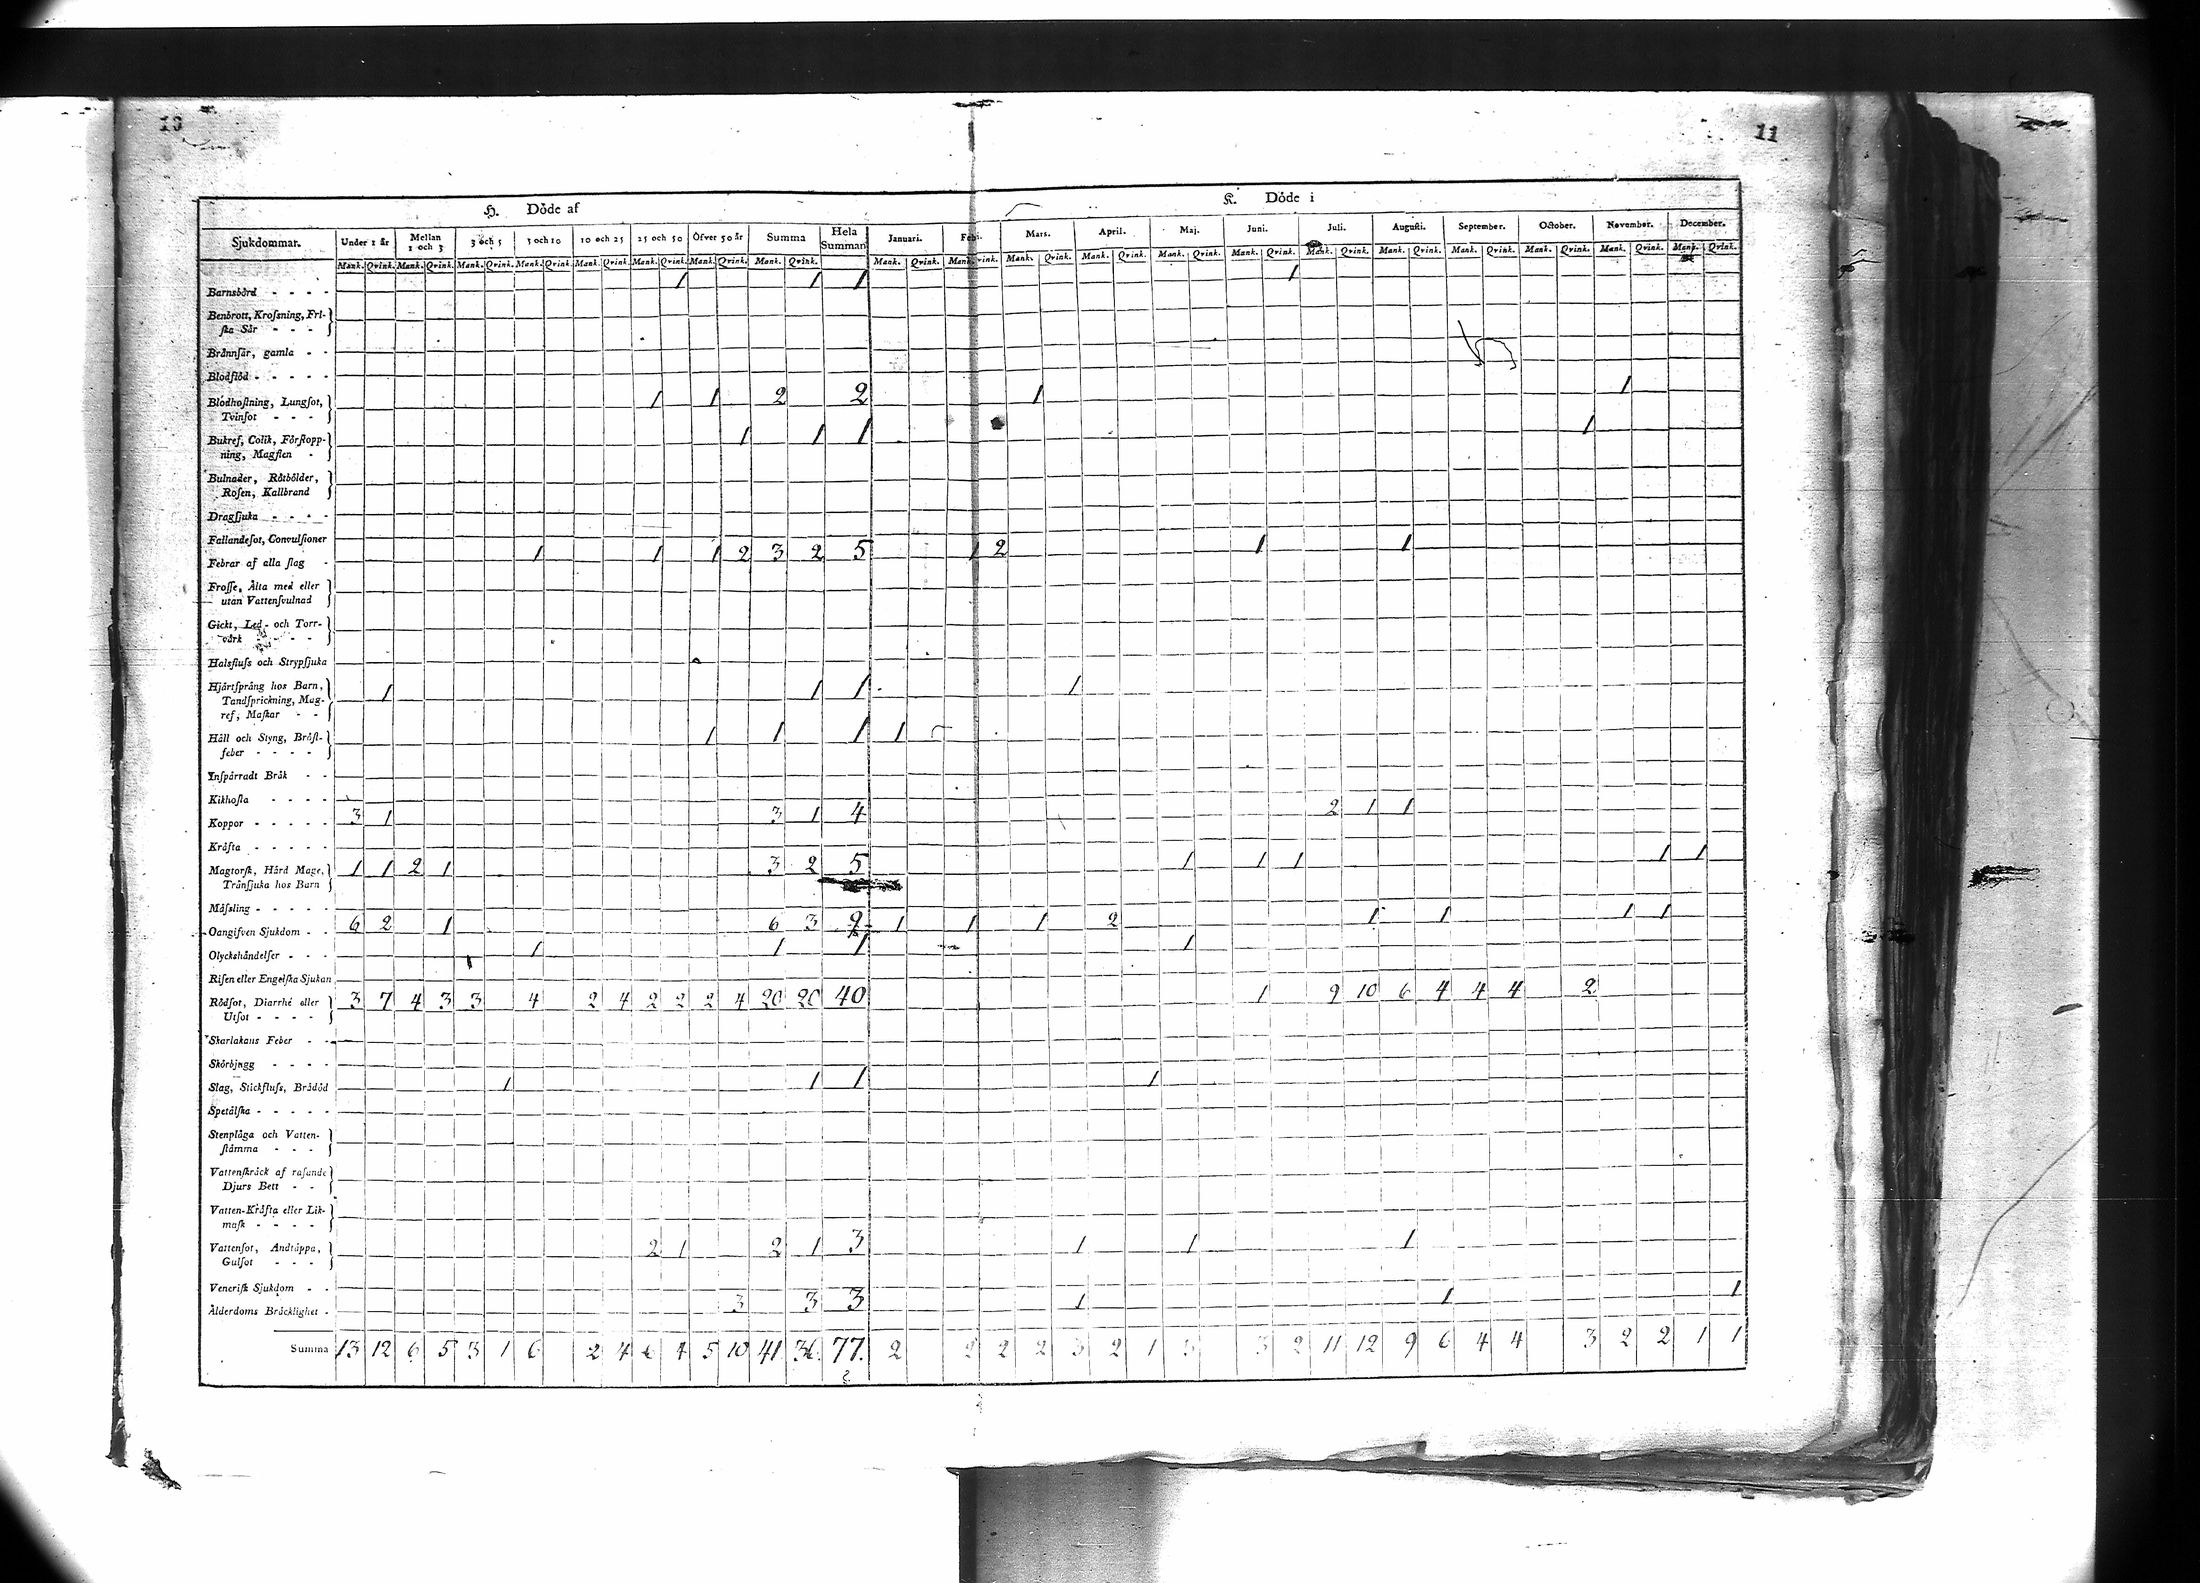 10
11
H. Döde af
K. Döde i
Sjukdommar. Under 1 år Mellan 1 och 3 3 och 5 5 och 10 10 och 25 25 och 50 Öfver 50 år Summa Hela Summan Januari. Febr. Mars. April. Maj. Juni. Juli. Augusti. September. October. November. December.
Mank. Qvink. Mank. Qvink. Mank. Qvink. Mank. Qvink. Mank. Qvink. Mank. Qvink. Mank. Qvink. Mank. Qvink. Mank. Qvink. Mank. Qvink. Mank. Qvink. Mank. Qvink. Mank. Qvink. Mank. Qvink. Mank. Qvink. Mank. Qvink. Mank. Qvink. Mank. Qvink. Mank. Qvink. Mank. Qvink.
Barnsbörd - - - - 1 1 1 1
Benbrott, Krosning, Fri-
ska Sår - - -
Brännsår, gamla - -
Blodflöd - - - - -
Blodhostning, Lungsot, 1 1 2 2 1 1
Tvinsot - - -
Bukref, Colik, Förstopp- 1 1 1 1
ning, Magsten -
Bulnader, Rötbölder,
Rosen, Kallbrand
Dragsjuka - - - -
Fallandesot, Convulsioner
Febrar af alla slag - 1 1 1 2 3 2 5 1 2 1 1
Frosse, Älta med eller
utan Vattensvulnad
Gickt, Led- och Torr-
värk - - - -
Halsfluss och Strypsjuka
Hjärtsprång hos Barn, 1 1 1 1
Tandsprickning, Mag-
ref, Maskar - -
Håll och Styng, Bröst- 1 1 1 1
feber - - - -
Inspärradt Bråk - -
Kikhosta - - - -
Koppor - - - - - 3 1 3 1 4 2 1 1
Kräfta - - - - -
Magtorsk, Hård Mage, 1 1 2 1 3 2 5 1 1 1 1 1
Tränsjuka hos Barn
Mässling - - - - -
Oangifven Sjukdom - - 6 2 1 6 3 9 1 1 1 2 1 1 1 1
Olyckshändelser - - - 1 1 1 1
Risen eller Engelska Sjukan
Rödsot, Diarrhé eller 3 7 4 3 3 4 2 4 2 2 2 4 20 20 40 1 9 10 6 4 4 4 2
Utsot - - - -
Skarlakans Feber - -
Skörbjugg - - - -
Slag, Stickfluss, Brådöd 1 1 1 1
Spetälska - - - - -
Stenplåga och Vatten-
stämma - - -
Vattenskräck af rasande
Djurs Bett - -
Vatten-Kräfta eller Lik-
mask - - - -
Vattensot, Andtäppa, 2 1 2 1 3 1 1 1
Gulsot - - -
Venerisk Sjukdom - -
Ålderdoms Bräcklighet - 3 3 3 1 1 1
Summa 13 12 6 5 3 1 6 2 4 6 4 5 10 41 36 77. 2 2 2 2 3 2 1 3 3 2 11 12 9 6 4 4 3 2 2 1 1